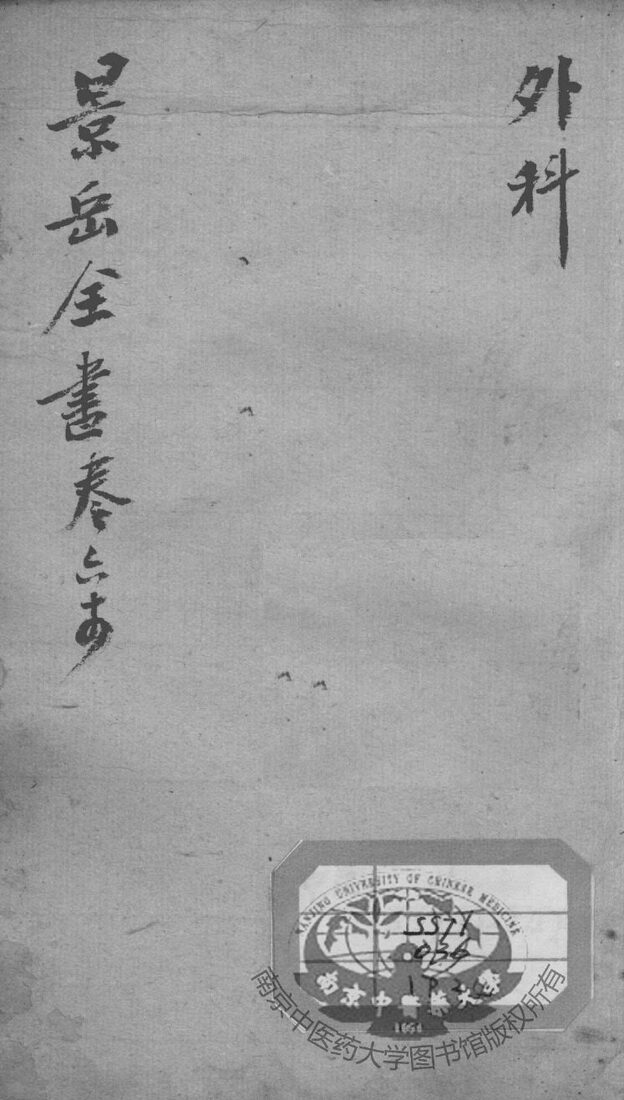 外科
景岳全書卷六十
NANJING UNIVERSITY OF CHINESE MEDICINE
南京中医药大学
1954
南京中医药大学图书馆版权所有